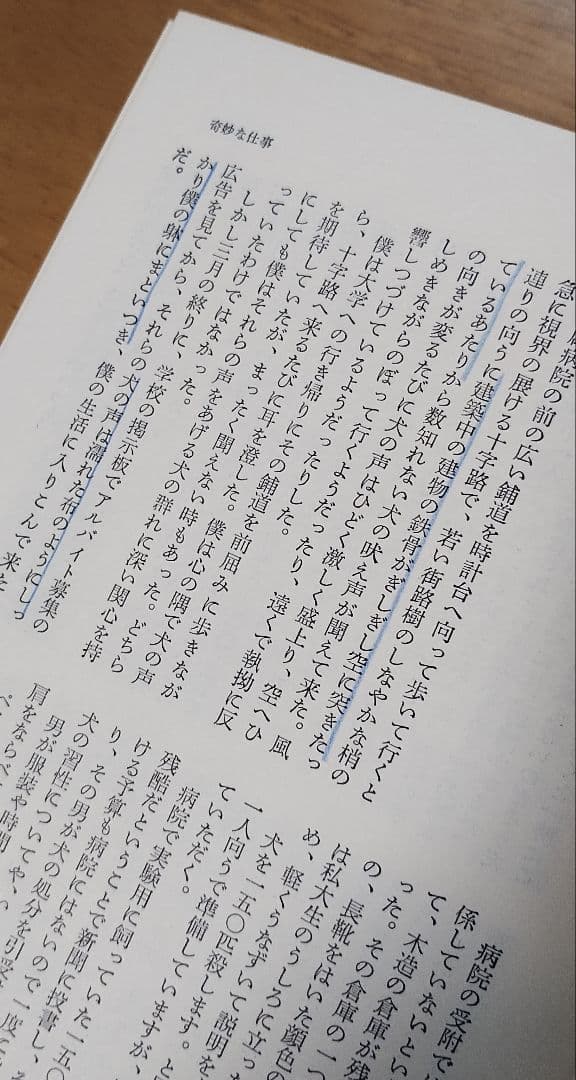 奇妙な仕事
属病院の前の広い鋪道を時計台へ向って歩いて行くと
急に視界の展ける十字路で、若い街路樹のしなやかな梢の
連りの向うに建築中の建物の鉄骨がぎしぎし空に突きたっ
ているあたりから数知れない犬の吠え声が聞えて来た。風
の向きが変るたびに犬の声はひどく激しく盛上り、空へひ
しめきながらのぼって行くようだったり、遠くで執拗に反
響しつづけているようだったりした。
僕は大学への行き帰りにその鋪道を前屈みに歩きなが
ら、十字路へ来るたびに耳を澄した。僕は心の隅で犬の声
を期待していたが、まったく聞えない時もあった。どちら
にしても僕はそれらの声をあげる犬の群れに深い関心を持
っていたわけではなかった。
しかし三月の終りに、学校の掲示板でアルバイト募集の
広告を見てから、それらの犬の声は濡れた布のようにしっ
かり僕の躰にまといつき、僕の生活に入りこんで来た
だ。
病院の受附で
係していない
て、木造の倉庫が残
った。その倉庫の一つ
の、長靴をはいた顔色の
は私大生のうしろに立った
め、軽くうなずいて説明を
犬を一五〇匹殺します。と
一人向うで準備していますが、
ていただく。
病院で実験用に飼っていた一五〇
残酷だということで新聞に投書し、そ
ける予算も病院にはないので一度に
り、その男が犬の処分を引受
犬の習性についてや、
男が服装や時間
肩をならべ